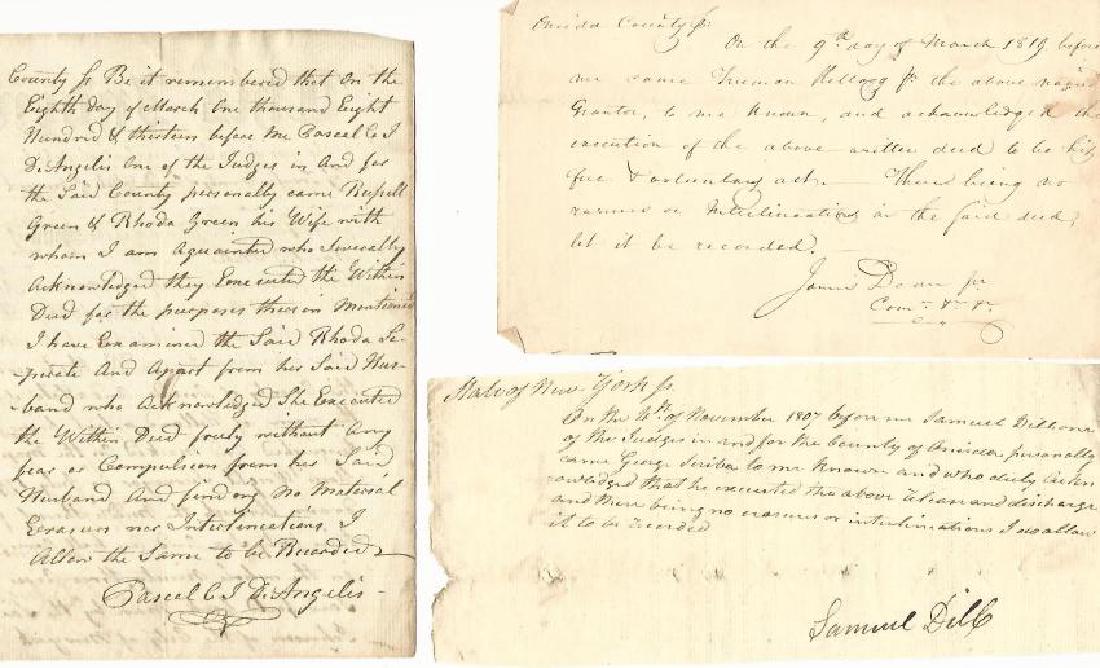 County Ss Be it remembered that on the
Eighth day of March One thousand Eight
Hundred & thirteen before me Pascal C I
D. Angelis One of the Judges in And for
the Said County personally came Russell
Green & Rhoda Green his Wife with
whom I am Aquainted who Sevually
Acknowledged they Executed the Within
Deed for the purposes therein Mentioned
I have Examined the Said Rhoda Se-
-perate And Apart from her Said Hus-
-band who Acknowledged She Executed
the Within Deed freely without Any
fear or Compulsion from her Said
Husband And finding no Material
Erasures nor Interlineations I
Allow the Same to be Recorded
Pascal C I D. Angelis
Oneida County Ss
On the 9th day of March 1819 before
me came Truman Kellogg Jr the above
Grantor, to me known, and acknowledged the
execution of the above written deed to be his
free & voluntary act. There being no
erasures or interlineations in the said deed,
let it be recorded.
James Dean Jr
Com
State of New York Ss
On the of November 1807 before me Samuel Dill one
of the Judges in and for the County of Oneida personally
came George Scriba to me known and who duly ackn
owledged that he executed the above and discharge
and there being no erasures or interliniations I do allow
it to be recorded
Samuel Dill